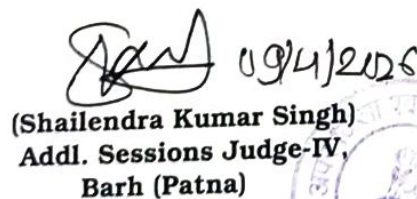 09/4/2026
(Shailendra Kumar Singh)
Addl. Sessions Judge-IV,
Barh (Patna)